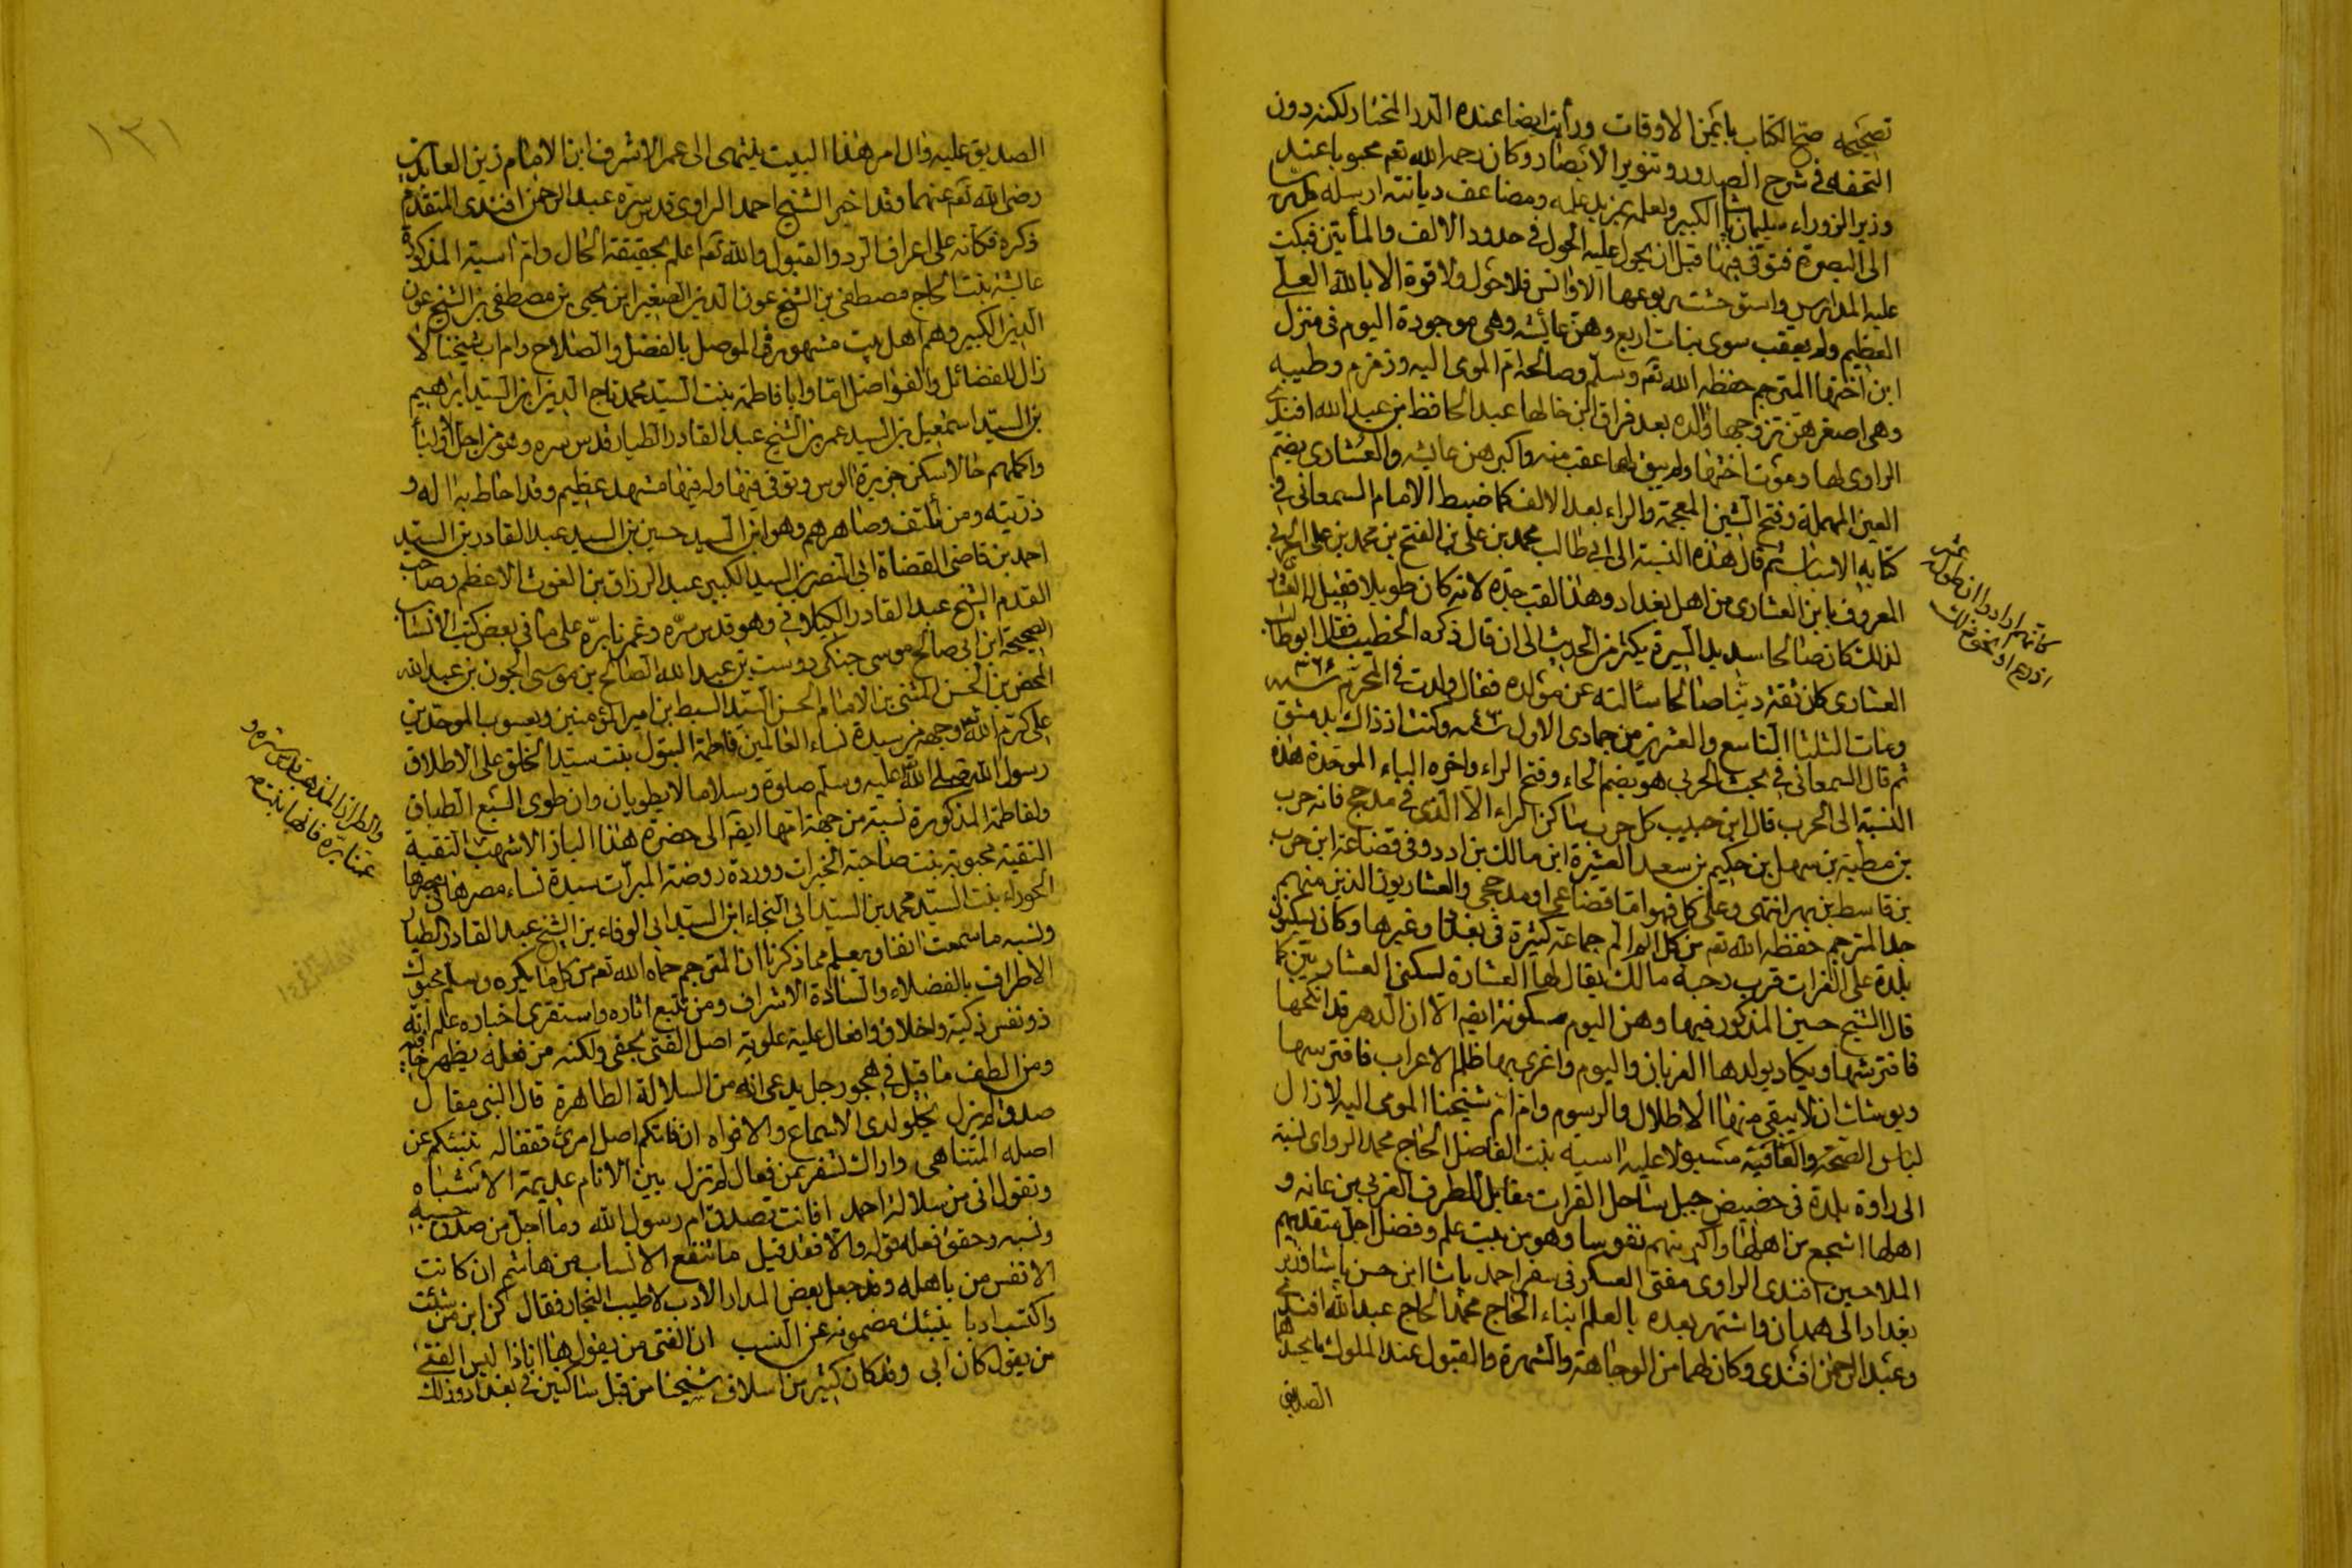 تصحيحه صح الكتاب بايمن الاوقات ورأيت ايضا عنده الدر المختار لكنه دون
التحفه في شرح الصدور وتنوير الابصار وكان رحمه الله تعم محبوبا عند
وزير الزوراء سليمان باشا الكبير ولعله بمزيد علمه ومضاعف ديانته ارسله
الى البصرة فتوفى فيها قبل ان يحول عليه الحول في حدود الالف والمأيتين فبكت
عليه المدارس واستوحشت ربوعها الاوانس فلا حول ولا قوة الا بالله العلي
العظيم ولم يعقب سوى بنات اربع وهن عائشه وهي موجودة اليوم في منزل
ابن اختها المترجم حفظه الله تعم وسلم وصالحه ام المومى اليه وزمزم وطيبه
وهي اصغرهن تزوجها والده بعد فراق ابن خالها عبد الحافظ بن عبد الله افندي
الراوي لها وموت اختها ولم يبق لها عقب منه واكبرهن عايشه والعشاري بضم
العين المهملة وفتح الشين المعجمة والراء بعد الالف كما ضبط الامام السمعاني في
كتابه الانساب ثم قال هذه النسبة الى ابي طالب محمد بن علي بن الفتح بن محمد بن علي الحربي
المعروف بابن العشاري من اهل بغداد وهذا لقب جده لانه كان طويلا فقيل له العشاري
لذلك كان صالحا سديد السيرة يكثر من الحديث الى ان قال ذكره الخطيب فقال ابو طالب
العشاري كان ثقة دينا صالحا سألته عن مولده فقال ولدت في المحرم سنه ٣٦٦
ومات الثلثا التاسع والعشرين من جمادى الاول سنه وكنت اذ ذاك بدمشق
ثم قال السمعاني في بحث الحربي هو بضم الحاء وفتح الراء واخره الباء الموحدة هذه
النسبة الى الحرب قال ابن حبيب كل حرب ساكن الراء الا الذي في مذحج فانه حرب
بن مطيه بن سهل بن حكيم بن سعد العشيرة ابن مالك بن ادد وفي قضاعة ابن حرب
بن قاسط بن بهرا انتهى وعلى كل فهو اما قضاعي او مذحجي والعشاريون الذين منهم
جد المترجم حفظه الله تعم من كل الم جماعة كثيرة في بغداد وغيرها وكان يسكنون
بلدة على الفرات قرب رحبة مالك يقال لها العشارة لسكنى العشاريين كما
قال الشيخ حسين المذكور فيها وهن اليوم مسكونة ايضه الا ان الدهر قد انكحها
فافترشها ويكاد يولدها الغربان واليوم واغرى بها ظلم الاعراب فافترسها
ويوشك ان لا يبقى منها الاطلال والرسوم وام ام شيخنا المومى اليه لا زال
لباس الصحة والعافية مسبولا عليه اسيه بنت الفاضل الحاج محمد الراوي نسبة
الى راوة بلدة في حضيض جبل ساحل الفرات مقابل للطرف الغربي من عانه و
اهلها اشجع من اهلها واكبر منهم نفوسا وهو من بيت علم وفضل اجل متقدميهم
الملا حسين افندي الراوي مفتي العسكر في سفر احمد باشا ابن حسن باشا وزير
بغداد الى همدان واشتهر بعده بالعلم ابناء الحاج محمد الحاج عبد الله افندي
وعبد الرحمن افندي وكان لهما من الوجاهة والشهرة والقبول عند الملوك
الصديق
كانهم ارادوا ان طوله عشر
اذرع او نحو ذلك
١٣١
الصديق عليه وال امر هذا البيت ينتهى الى عمر الاشرف ابن الامام زين العابدين
رضى الله تعم عنهما وقد اخبر الشيخ احمد الراوي قدس سره عبد الرحمن افندي المتقدم
ذكره فكأنه على اعراف الرد والقبول والله تعم اعلم بحقيقة الحال وام اسية المذكورة
عايشه بنت الحاج مصطفى بن الشيخ عون الدين الصغير ابن يحيى بن مصطفى بن الشيخ عون
الدين الكبير وهم اهل بيت مشهور في الموصل بالفضل والصلاح وام اب شيخنا لا
زال للفضائل والفواضل اما وابا فاطمة بنت السيد محمد تاج الدين ابن السيد ابراهيم
بن السيد اسمعيل بن السيد عمر بن الشيخ عبد القادر الطيار قدس سره وهو من اجل الاوليأ
واكملهم حالا سكن جزيرة الوس وتوفي فيها وله فيها مشهد عظيم وقد احاط به اله و
ذريته ومن التف وصاهرهم وهو ابن السيد حسين بن السيد عبد القادر بن السيد
احمد بن قاضي القضاة ابي النصر بن السيد الكبير عبد الرزاق بن الغوث الاعظم وصاحب
القدم الشيخ عبد القادر الكيلاني وهو قدس سره وغمرنا بره على ما في بعض كتب الانساب
الصحيحة ابن ابي صالح موسى جنكي دوست بن عبد الله الصالح بن موسى الجون بن عبد الله
المحض بن الحسن المثنى بن الامام الحسن السيد السبط بن امير المؤمنين ويعسوب الموحدين
على كرم الله وجهه من سيدة نساء العالمين فاطمة البتول بنت سيد الخلق على الاطلاق
رسول الله صلى الله عليه وسلم صلوة وسلاما لا يطويان وان طوى السبع الطباق
ولفاطمة المذكورة نسبة من جهة امها ايضه الى حضرة هذا الباز الاشهب النقية
النقية محبوبة بنت صاحبة الخيرات ووردة روضة المبرات سيدة نساء مصرها
الحوراء بنت السيد محمد بن السيد ابي النجاء ابن السيد ابي الوفاء بن الشيخ عبد القادر الطيار
ونسبه ما سمعت انفا ويعلم مما ذكرنا ان المترجم حماه الله تعم من كل ما يكره وسلم محبوك
الاطراف بالفضلاء والسادة الاشراف ومن تتبع اثاره واستقرى اخباره علم انه
ذو نفس زكية واخلاق وافعال علية علوية اصل الفتى يخفى ولكنه من فعله يظهر خافيه
ومن الطف ما قيل في هجو رجل يدعى انه من السلالة الطاهرة قال النبي مقال
صدق لم يزل يحلو لدى الاسماع والافواه ان فاتكم اصل امرئ ففعاله تنبئكم عن
اصله المتناهي واراك تسفر عن فعال لم تزل بين الانام عديمة الاشباه
وتقول اني من سلالة احمد افانت تصدق ام رسول الله وما اجل من صدق حسبه
ونسبه وحقق فعله قوله والا فقد قيل ما تنفع الانساب من هاشم ان كانت
الانفس من باهله وقد جعل بعض المدار الادب لا طيب النجار فقال كن ابن من شئت
واكتسب ادبا يغنيك مضمونه عن النسب ان الفتى من يقول ها انا ذا ليس الفتى
من يقول كان ابي وقد كان كثير من اسلاف شيخنا من قبل ساكنين في بغداد وذلك
والطراز المذهب قدس سره و
غمرنا بره فانها بنته